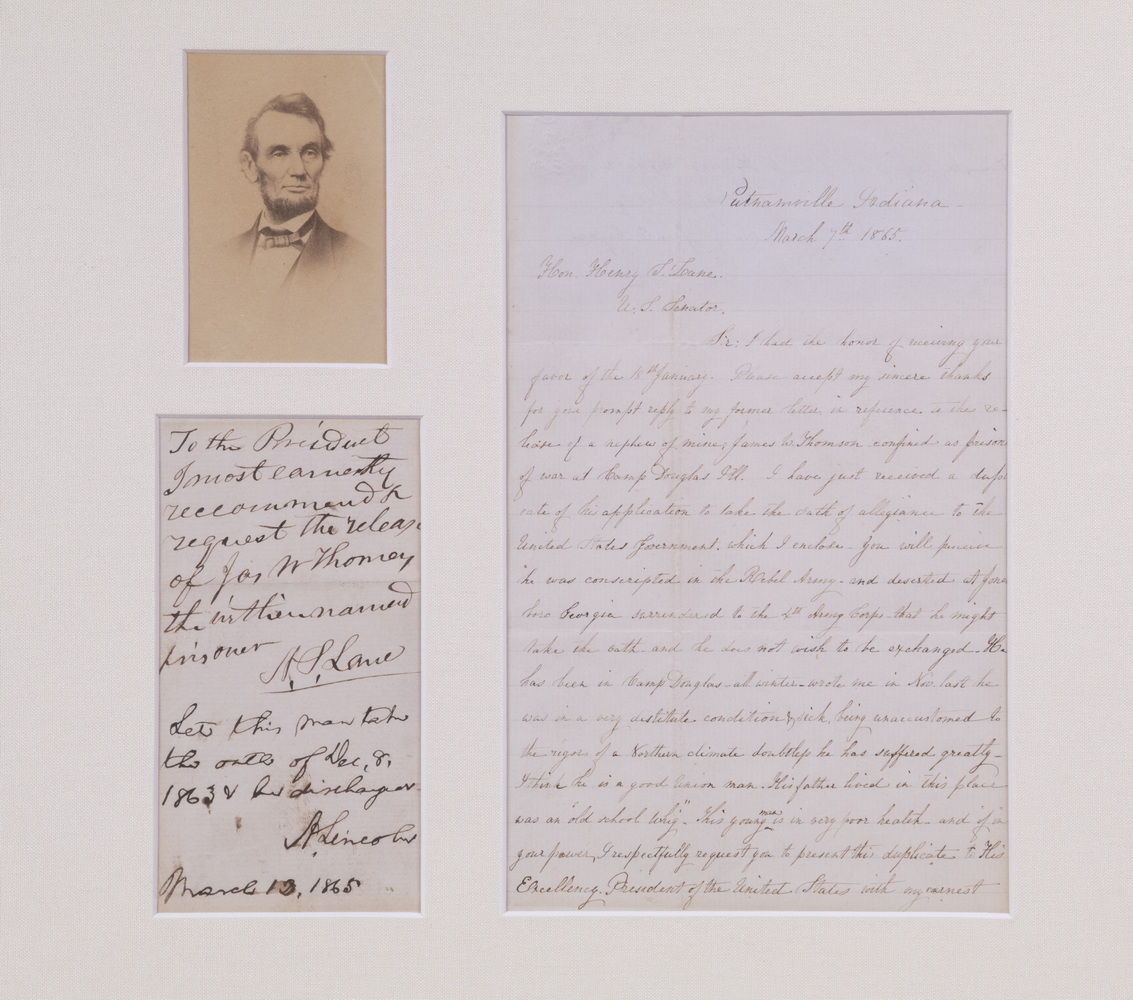 To the President
I most earnestly
recommend &
request the releas
of Jas W Thomey
the within named
prisoner
H. S. Lane
Let this man take
the oath of Dec. 8,
1863 & be discharged
A. Lincoln
March 13, 1865
Putnamville Indiana
March 7th 1865.
Hon. Henry S. Lane.
U. S. Senator.
Sir: I had the honor of receiving your
favor of the 18th January. Please accept my sincere thanks
for your prompt reply to my former letter, in reference to the re-
lease of a nephew of mine, James W. Thomson confined as prison
of war at Camp Douglas Ill. I have just received a dupli
cate of his application to take the oath of allegiance to the
United States Government, which I enclose. You will perceive
he was conscripted in the Rebel Army and deserted at Jones
boro Georgia surrendered to the 4th Army Corps that he might
take the oath and he does not wish to be exchanged. He
has been in Camp Douglas all winter wrote me in Nov. last he
was in a very destitute condition & sick, being unaccustomed to
the rigor of a Northern climate doubtless he has suffered greatly
I think he is a good Union man. His father lived in this place
was an "old school Whig". This young man is in very poor health and if in
your power, I respectfully request you to present this duplicate to His
Excellency President of the United States with my earnest